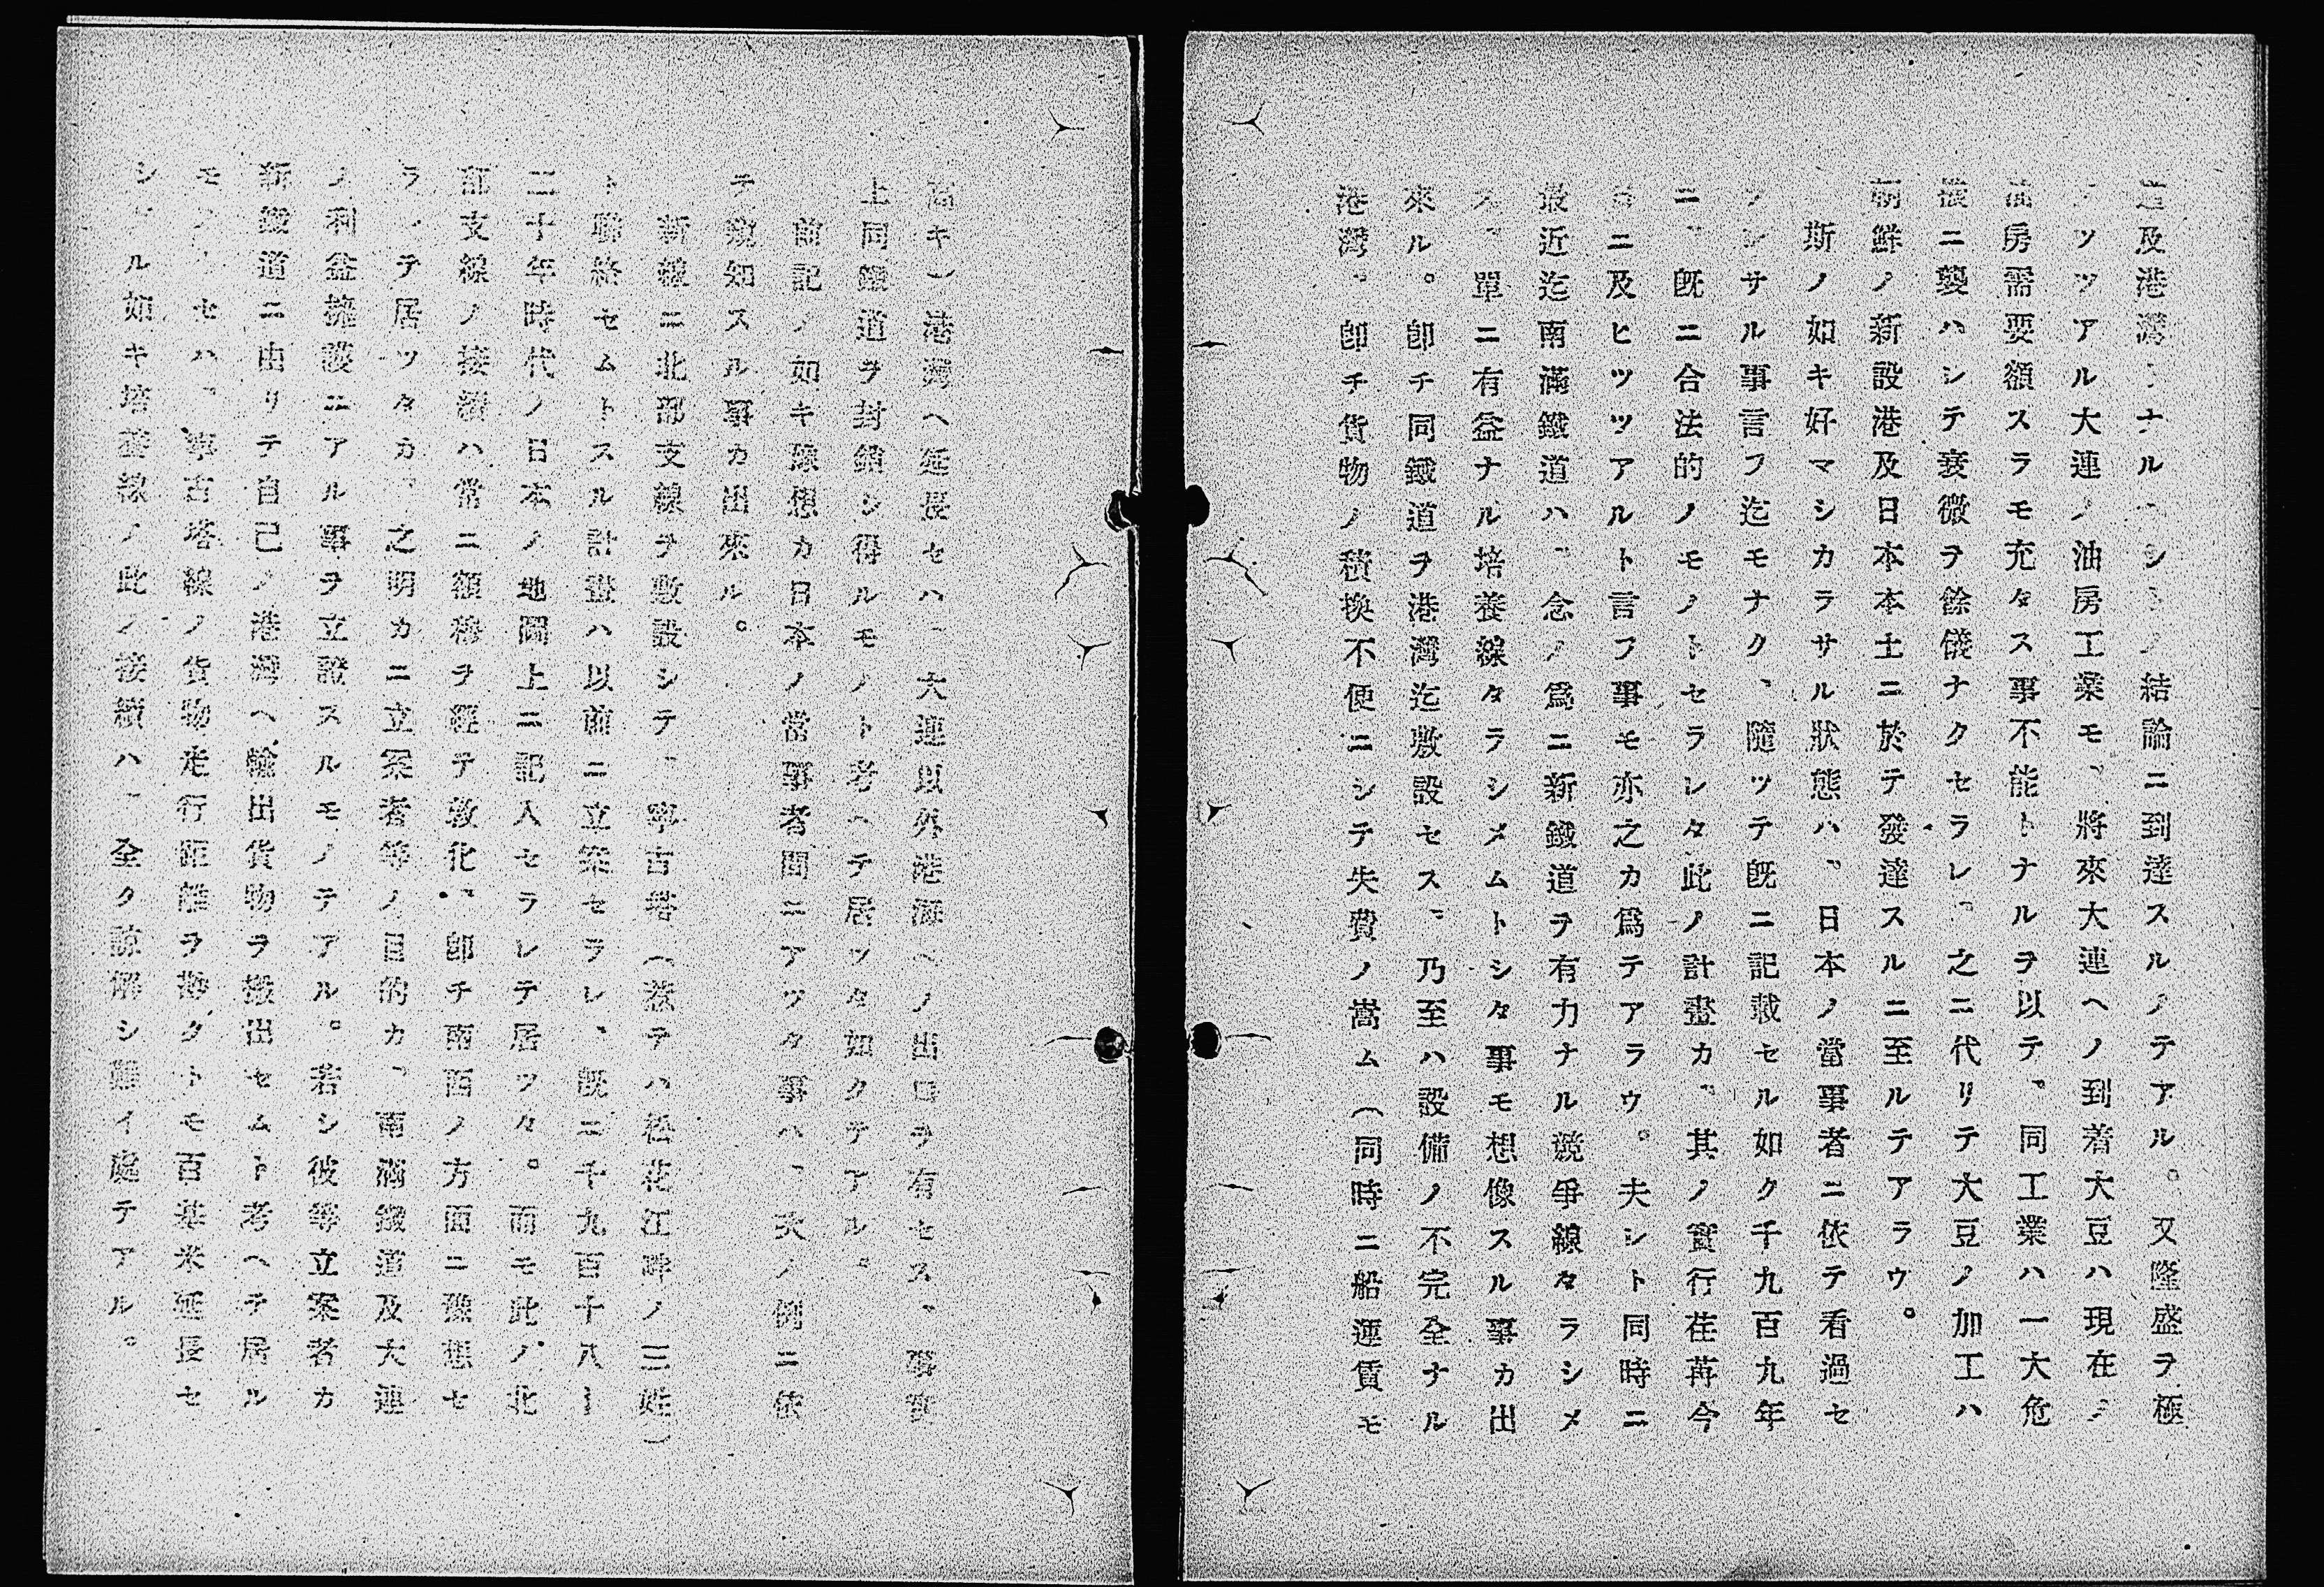 道及港灣トナルヘシトノ結論ニ到達スルノテアル。又隆盛ヲ極
メツツアル大連ノ油房工業モ、將來大連ヘノ到着大豆ハ現在ノ
油房需要額スラモ充タス事不能トナルヲ以テ、同工業ハ一大危
機ニ襲ハシテ衰微ヲ餘儀ナクセラレ、之ニ代リテ大豆ノ加工ハ
朝鮮ノ新設港及日本本土ニ於テ發達スルニ至ルテアラウ。
斯ノ如キ好マシカラサル狀態ハ、日本ノ當事者ニ依テ看過セ
ラレサル事言フ迄モナク、隨ツテ既ニ記載セル如ク千九百九年
ニ、既ニ合法的ノモノトセラレタ此ノ計畫カ、其ノ實行荏苒今
ニ及ヒツツアルト言フ事モ亦之カ爲テアラウ。夫レト同時ニ
最近迄南滿鐵道ハ、念ノ爲ニ新鐵道ヲ有力ナル競爭線タラシメ
ス、單ニ有益ナル培養線タラシメムトシタ事モ想像スル事カ出
來ル。卽チ同鐵道ヲ港灣迄敷設セス、乃至ハ設備ノ不完全ナル
港灣、卽チ貨物ノ積換不便ニシテ失費ノ嵩ム(同時ニ船運賃モ
高キ)港灣ヘ延長セハ、大連以外港灣ヘノ出口ヲ有セス、事實
上同鐵道ヲ封鎖シ得ルモノト考ヘテ居ツタ如クテアル。
前記ノ如キ豫想カ日本ノ當事者間ニアツタ事ハ、次ノ例ニ依
テ窺知スル事カ出來ル。
新線ニ北部支線ヲ敷設シテ、寧古塔(越テハ松花江畔ノ三姓)
ト聯絡セムトスル計畫ハ以前ニ立案セラレ、既ニ千九百十八ー
二十年時代ノ日本ノ地圖上ニ記入セラレテ居ツタ。而モ此ノ北
部支線ノ接續ハ常ニ額穆ヲ經テ敦化、卽チ南西ノ方面ニ豫想セ
ラレテ居ツタカ、之明カニ立案者等ノ目的カ、南滿鐵道及大連
ノ利益擁護ニアル事ヲ立證スルモノテアル。若シ彼等立案者カ
新鐵道ニ由リテ自己ノ港灣ヘ輸出貨物ヲ搬出セムト考ヘテ居ル
モノトセハ、寧古塔線ノ貨物走行距離ヲ尠クトモ百基米延長セ
シムル如キ培養線ノ此ノ接續ハ、全ク諒解シ難イ處テアル。